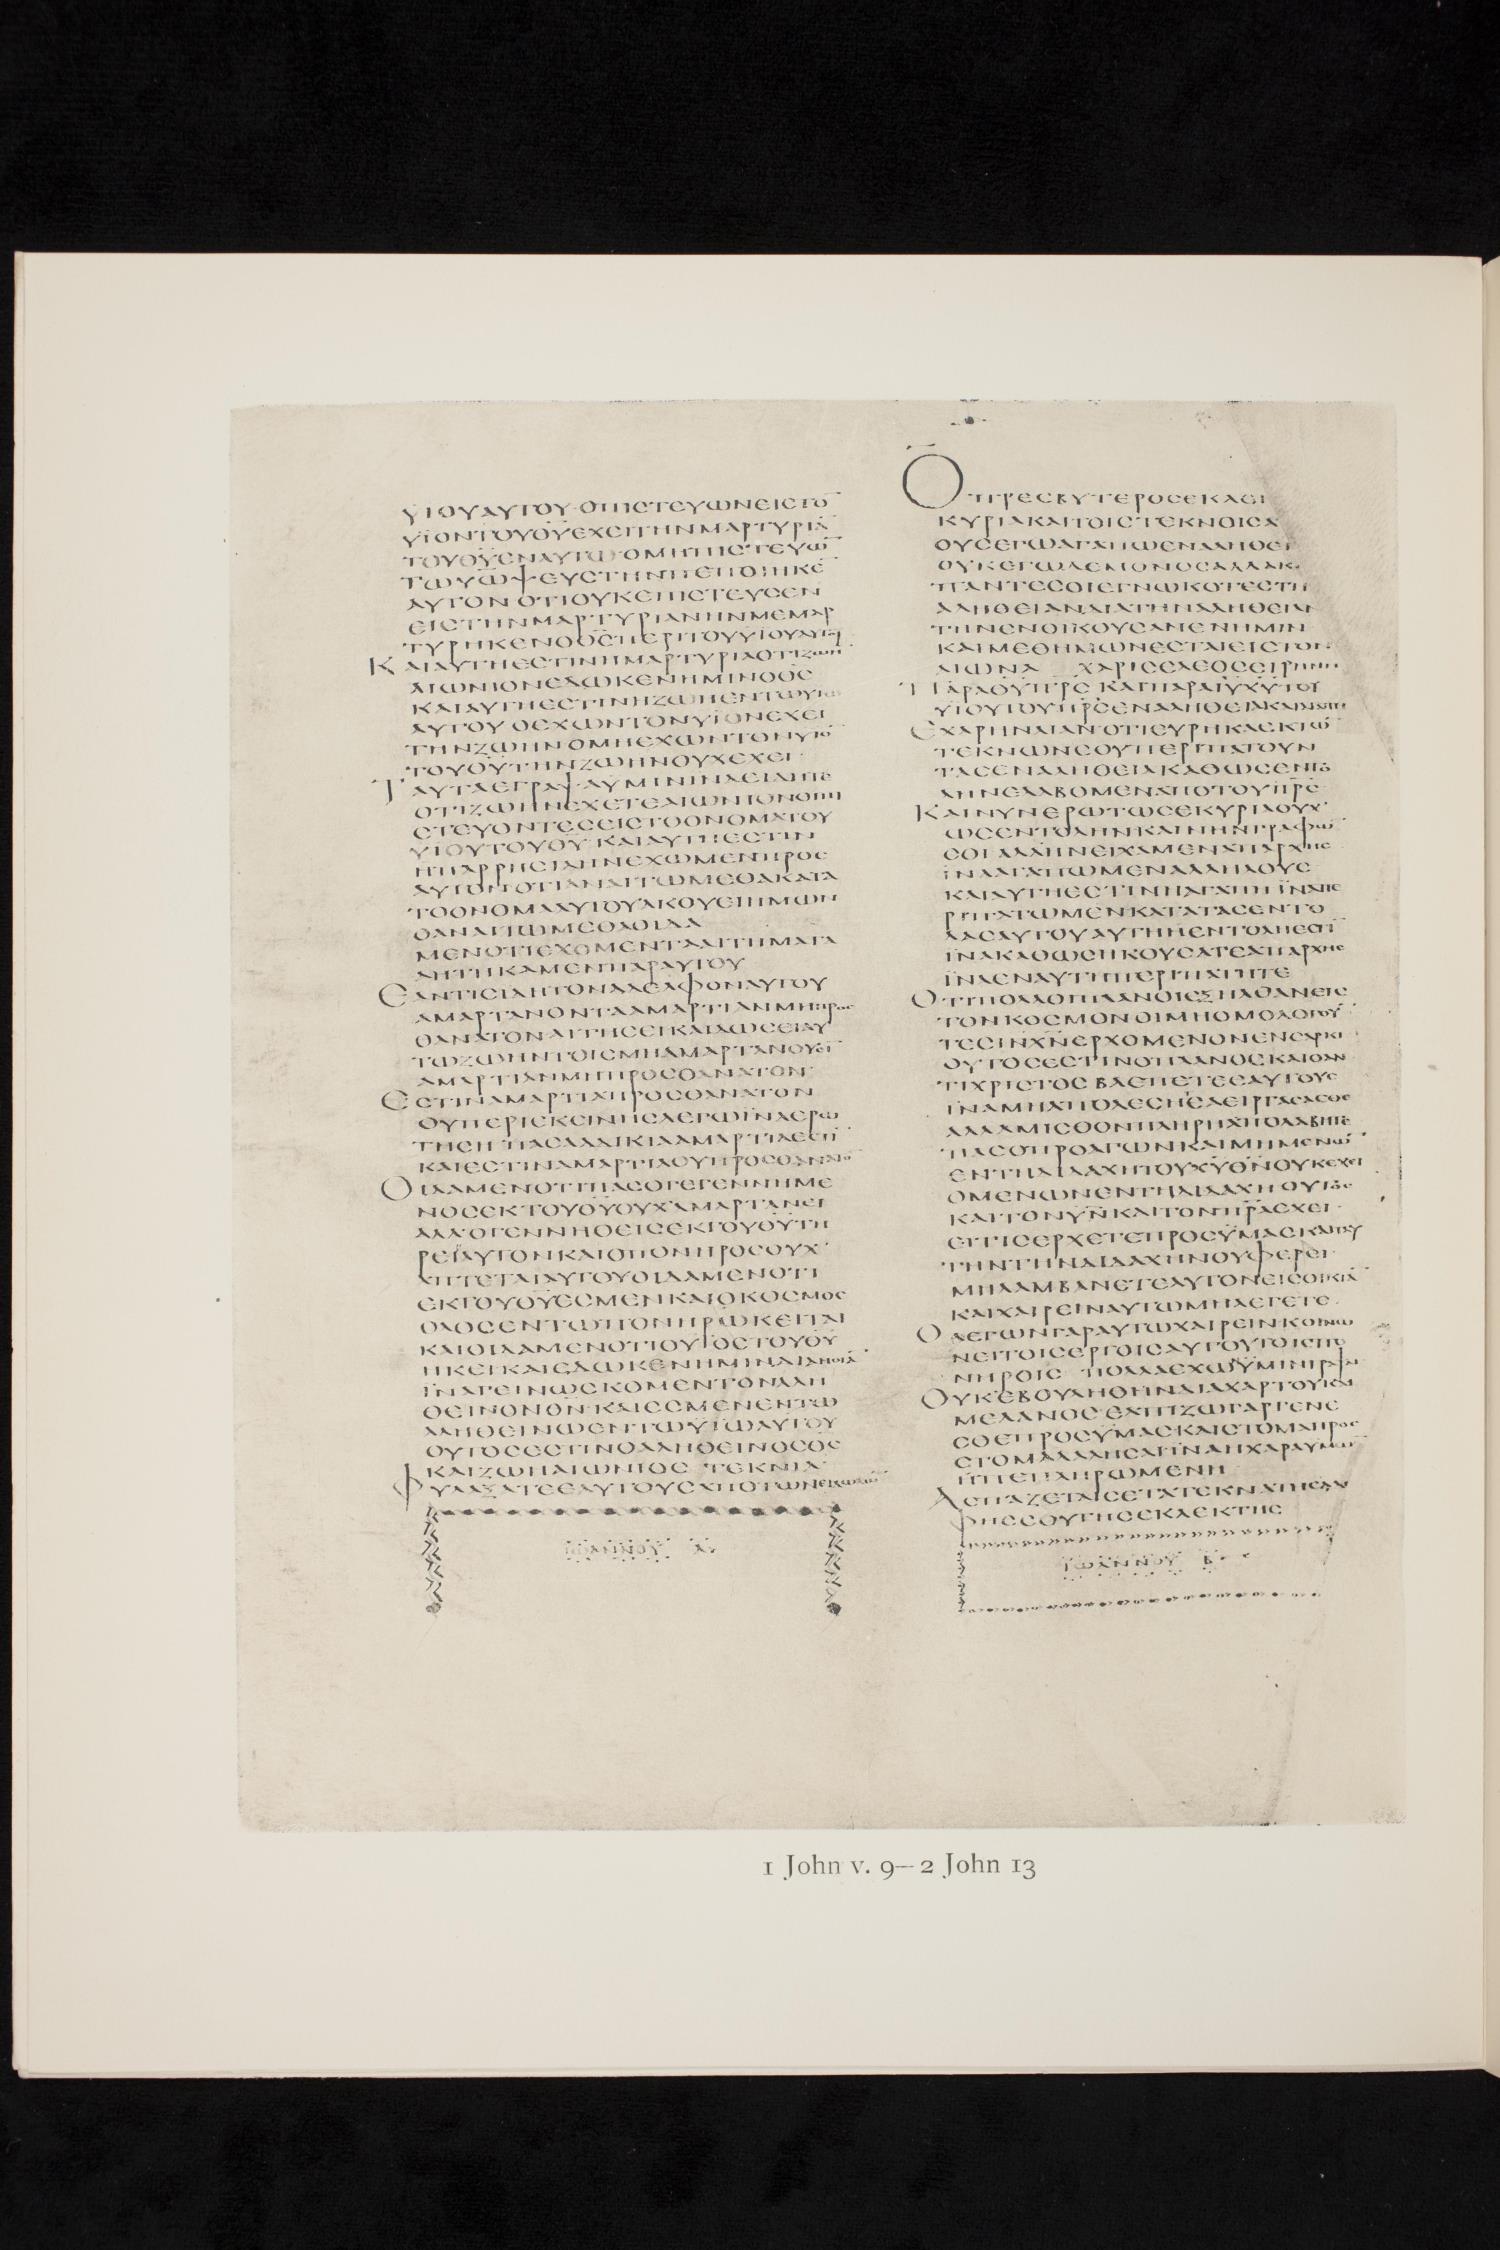 ΥΙΟΥΑΥΤΟΥ·ΟΠΙCΤΕΥΩΝΕΙCΤΟ̅
ΥΪΟΝΤΟΥΘ̅Υ̅ΕΧΕΙΤΗΝΜΑΡΤΥΡΙΑ̅
ΤΟΥΘ̅Υ̅ΕΝΑΥΤΩ·ΟΜΗΠΙCΤΕΥΩ̅
ΤΩΥ̅Ω̅ΨΕΥCΤΗΝΠΕΠΟΙΗΚΕ̅
ΑΥΤΟΝΟΤΙΟΥΚΕΠΙCΤΕΥCΕΝ
ΕΙCΤΗΝΜΑΡΤΥΡΙΑΝΗΝΜΕΜΑΡ
ΤΥΡΗΚΕΝΟΘ̅C̅ΠΕΡΙΤΟΥΥΪΟΥΑΥΤΟΥ
ΚΑΙΑΥΤΗΕCΤΙΝΗΜΑΡΤΥΡΙΑΟΤΙΖΩΗ̅
ΑΙΩΝΙΟΝΕΔΩΚΕΝΗΜΙΝΟΘ̅C̅
ΚΑΙΑΥΤΗΕCΤΙΝΗΖΩΗΕΝΤΩΥΙΩ
ΑΥΤΟΥ·ΟΕΧΩΝΤΟΝΥΪΟΝΕΧΕΙ
ΤΗΝΖΩΗΝ·ΟΜΗΕΧΩΝΤΟΝΥΙΟ̅
ΤΟΥΘ̅Υ̅ΤΗΝΖΩΗΝΟΥΧΕΧΕΙ·
ΤΑΥΤΑΕΓΡΑΨΑΥΜΙΝΙΝΑΕΙΔΗΤΕ
ΟΤΙΖΩΗΝΕΧΕΤΕΑΙΩΝΙΟΝΟΙΠΙ
CΤΕΥΟΝΤΕCΕΙCΤΟΟΝΟΜΑΤΟΥ
ΥΙΟΥΤΟΥΘ̅Υ̅·ΚΑΙΑΥΤΗΕCΤΙΝ
ΗΠΑΡΡΗCΙΑΗΝΕΧΩΜΕΝΠΡΟC
ΑΥΤΟΝΟΤΙΑΝΑΙΤΩΜΕΘΑΚΑΤΑ
ΤΟΟΝΟΜΑΑΥΤΟΥΑΚΟΥΕΙΗΜΩΝ
ΟΑΝΑΙΤΩΜΕΘΑΟΙΔΑ
ΜΕΝΟΤΙΕΧΟΜΕΝΤΑΑΙΤΗΜΑΤΑ
ΑΗΤΗΚΑΜΕΝΠΑΡΑΥΤΟΥ
ΕΑΝΤΙCΙΔΗΤΟΝΑΔΕΛΦΟΝΑΥΤΟΥ
ΑΜΑΡΤΑΝΟΝΤΑΑΜΑΡΤΙΑΝΜΗΠΡΟC
ΘΑΝΑΤΟΝΑΙΤΗCΕΙΚΑΙΔΩCΕΙΑΥ
ΤΩΖΩΗΝΤΟΙCΜΗΑΜΑΡΤΑΝΟΥCΙ̅
ΑΜΑΡΤΙΑΝΜΗΠΡΟCΘΑΝΑΤΟΝ·
ΕCΤΙΝΑΜΑΡΤΙΑΠΡΟCΘΑΝΑΤΟΝ
ΟΥΠΕΡΙΕΚΕΙΝΗCΛΕΓΩΪΝΑΕΡΩ
ΤΗCΗ·ΠΑCΑΑΔΙΚΙΑΑΜΑΡΤΙΑΕCΤΙ̅
ΚΑΙΕCΤΙΝΑΜΑΡΤΙΑΟΥΠΡΟCΘΑΝΑΤΟ̅
ΟΙΔΑΜΕΝΟΤΙΠΑCΟΓΕΓΕΝΝΗΜΕ
ΝΟCΕΚΤΟΥΘ̅Υ̅ΟΥΧΑΜΑΡΤΑΝΕΙ
ΑΛΛΟΓΕΝΝΗΘΕΙCΕΚΤΟΥΘ̅Υ̅ΤΗ
ΡΕΙΑΥΤΟΝΚΑΙΟΠΟΝΗΡΟCΟΥΧ
ΑΠΤΕΤΑΙΑΥΤΟΥΟΙΔΑΜΕΝΟΤΙ
ΕΚΤΟΥΘ̅Υ̅ΕCΜΕΝΚΑΙΟΚΟCΜΟC
ΟΛΟCΕΝΤΩΠΟΝΗΡΩΚΕΙΤΑΙ
ΚΑΙΟΙΔΑΜΕΝΟΤΙΟΥΙΟCΤΟΥΘ̅Υ̅
ΗΚΕΙΚΑΙΕΔΩΚΕΝΗΜΙΝΔΙΑΝΟΙΑ̅
ΪΝΑΓΕΙΝΩCΚΟΜΕΝΤΟΝΑΛΗ
ΘΕΙΝΟΝΘ̅Ν̅·ΚΑΙΕCΜΕΝΕΝΤΩ
ΑΛΗΘΕΙΝΩΕΝΤΩΥΪΩΑΥΤΟΥ
ΟΥΤΟCΕCΤΙΝΟΑΛΗΘΕΙΝΟCΘ̅C̅
ΚΑΙΖΩΗΑΙΩΝΙΟC ΤΕΚΝΙΑ
ΦΥΛΑΞΑΤΕΕΑΥΤΟΥCΑΠΟΤΩΝΕΙΔΩΛΩ̅
ΙΩΑΝΝΟΥ Α
ΟΠΡΕCΒΥΤΕΡΟCΕΚΛΕΙ
ΚΥΡΙΑΚΑΙΤΟΙCΤΕΚΝΟΙCΑ
ΟΥCΕΓΩΑΓΑΠΩΕΝΑΛΗΘΕΙ
ΟΥΚΕΓΩΔΕΜΟΝΟCΑΛΛΑΚ
ΠΑΝΤΕCΟΙΕΓΝΩΚΟΤΕCΤΗ
ΑΛΗΘΕΙΑΝΔΙΑΤΗΝΑΛΗΘΕΙΑΝ
ΤΗΝΕΝΟΙΚΟΥCΑΝΕΝΗΜΙΝ
ΚΑΙΜΕΘΗΜΩΝΕCΤΑΙΕΙCΤΟΝ
ΑΙΩΝΑ ΧΑΡΙCΕΛΕΟCΕΙΡΗΝΗ
ΠΑΡΑΘ̅Υ̅Π̅Ρ̅C̅ΚΑΙΠΑΡΑΙ̅Υ̅Χ̅Υ̅ΤΟΥ
ΥΙΟΥΤΟΥΠ̅Ρ̅C̅ΕΝΑΛΗΘΕΙΑΚΑΙΑΓΑΠΗ
ΕΧΑΡΗΝΛΙΑΝΟΤΙΕΥΡΗΚΑΕΚΤΩ̅
ΤΕΚΝΩΝCΟΥΠΕΡΙΠΑΤΟΥΝ
ΤΑCΕΝΑΛΗΘΕΙΑΚΑΘΩCΕΝΤΟ
ΛΗΝΕΛΑΒΟΜΕΝΑΠΟΤΟΥΠ̅Ρ̅C̅
ΚΑΙΝΥΝΕΡΩΤΩCΕΚΥΡΙΑΟΥΧ
ΩCΕΝΤΟΛΗΝΚΑΙΝΗΝΓΡΑΦΩ̅
CΟΙΑΛΛΗΝΕΙΧΑΜΕΝΑΠΑΡΧΗC
ΪΝΑΑΓΑΠΩΜΕΝΑΛΛΗΛΟΥC
ΚΑΙΑΥΤΗΕCΤΙΝΗΑΓΑΠΗΪΝΑΠΕ
ΡΙΠΑΤΩΜΕΝΚΑΤΑΤΑCΕΝΤΟ
ΛΑCΑΥΤΟΥΑΥΤΗΗΕΝΤΟΛΗΕCΤΙ̅
ΪΝΑΚΑΘΩCΗΚΟΥCΑΤΕΑΠΑΡΧΗC
ΪΝΑΕΝΑΥΤΗΠΕΡΙΠΑΤΗΤΕ
ΟΤΙΠΟΛΛΟΙΠΛΑΝΟΙΕΞΗΛΘΑΝΕΙC
ΤΟΝΚΟCΜΟΝΟΙΜΗΟΜΟΛΟΓΟΥ̅
ΤΕCΙ̅Ν̅Χ̅Ν̅ΕΡΧΟΜΕΝΟΝΕΝCΑΡΚΙ
ΟΥΤΟCΕCΤΙΝΟΠΛΑΝΟCΚΑΙΟΑΝ
ΤΙΧΡΙCΤΟCΒΛΕΠΕΤΕΕΑΥΤΟΥC
ΪΝΑΜΗΑΠΟΛΕCΗΕΑΕΙΡΓΑCΑCΘΕ
ΑΛΛΑΜΙCΘΟΝΠΛΗΡΗΑΠΟΛΑΒΗΤΕ
ΠΑCΟΠΡΟΑΓΩΝΚΑΙΜΗΜΕΝΩ̅
ΕΝΤΗΔΙΔΑΧΗΤΟΥΧ̅Υ̅Θ̅Ν̅ΟΥΚΕΧΕΙ
ΟΜΕΝΩΝΕΝΤΗΔΙΔΑΧΗΟΥΤΟC
ΚΑΙΤΟΝΥ̅Ν̅ΚΑΙΤΟΝΠ̅Ρ̅Α̅ΕΧΕΙ·
ΕΙΤΙCΕΡΧΕΤΕΠΡΟCΥΜΑCΚΑΙΤΑΥ
ΤΗΝΤΗΝΔΙΔΑΧΗΝΟΥΦΕΡΕΙ·
ΜΗΛΑΜΒΑΝΕΤΕΑΥΤΟΝΕΙCΟΙΚΙΑ̅
ΚΑΙΧΑΙΡΕΙΝΑΥΤΩΜΗΛΕΓΕΤΕ·
ΟΛΕΓΩΝΓΑΡΑΥΤΩΧΑΙΡΕΙΝΚΟΙΝΩ
ΝΕΙΤΟΙCΕΡΓΟΙCΑΥΤΟΥΤΟΙCΠΟ
ΝΗΡΟΙC ΠΟΛΛΑΕΧΩΫΜΙΝΓΡΑΨΑΙ
ΟΥΚΕΒΟΥΛΗΘΗΝΔΙΑΧΑΡΤΟΥΚΑΙ
ΜΕΛΑΝΟCΕΛΠΙΖΩΓΑΡΓΕΝΕ
CΘΕΠΡΟCΥΜΑCΚΑΙCΤΟΜΑΠΡΟC
CΤΟΜΑΛΑΛΗCΑΙΪΝΑΗΧΑΡΑΥΜΩ̅
ΗΠΕΠΛΗΡΩΜΕΝΗ
ΑCΠΑΖΕΤΑΙCΕΤΑΤΕΚΝΑΤΗCΑΔΕΛ
ΦΗCCΟΥΤΗCΕΚΛΕΚΤΗC
ΙΩΑΝΝΟΥ Β
1 John v. 9–2 John 13